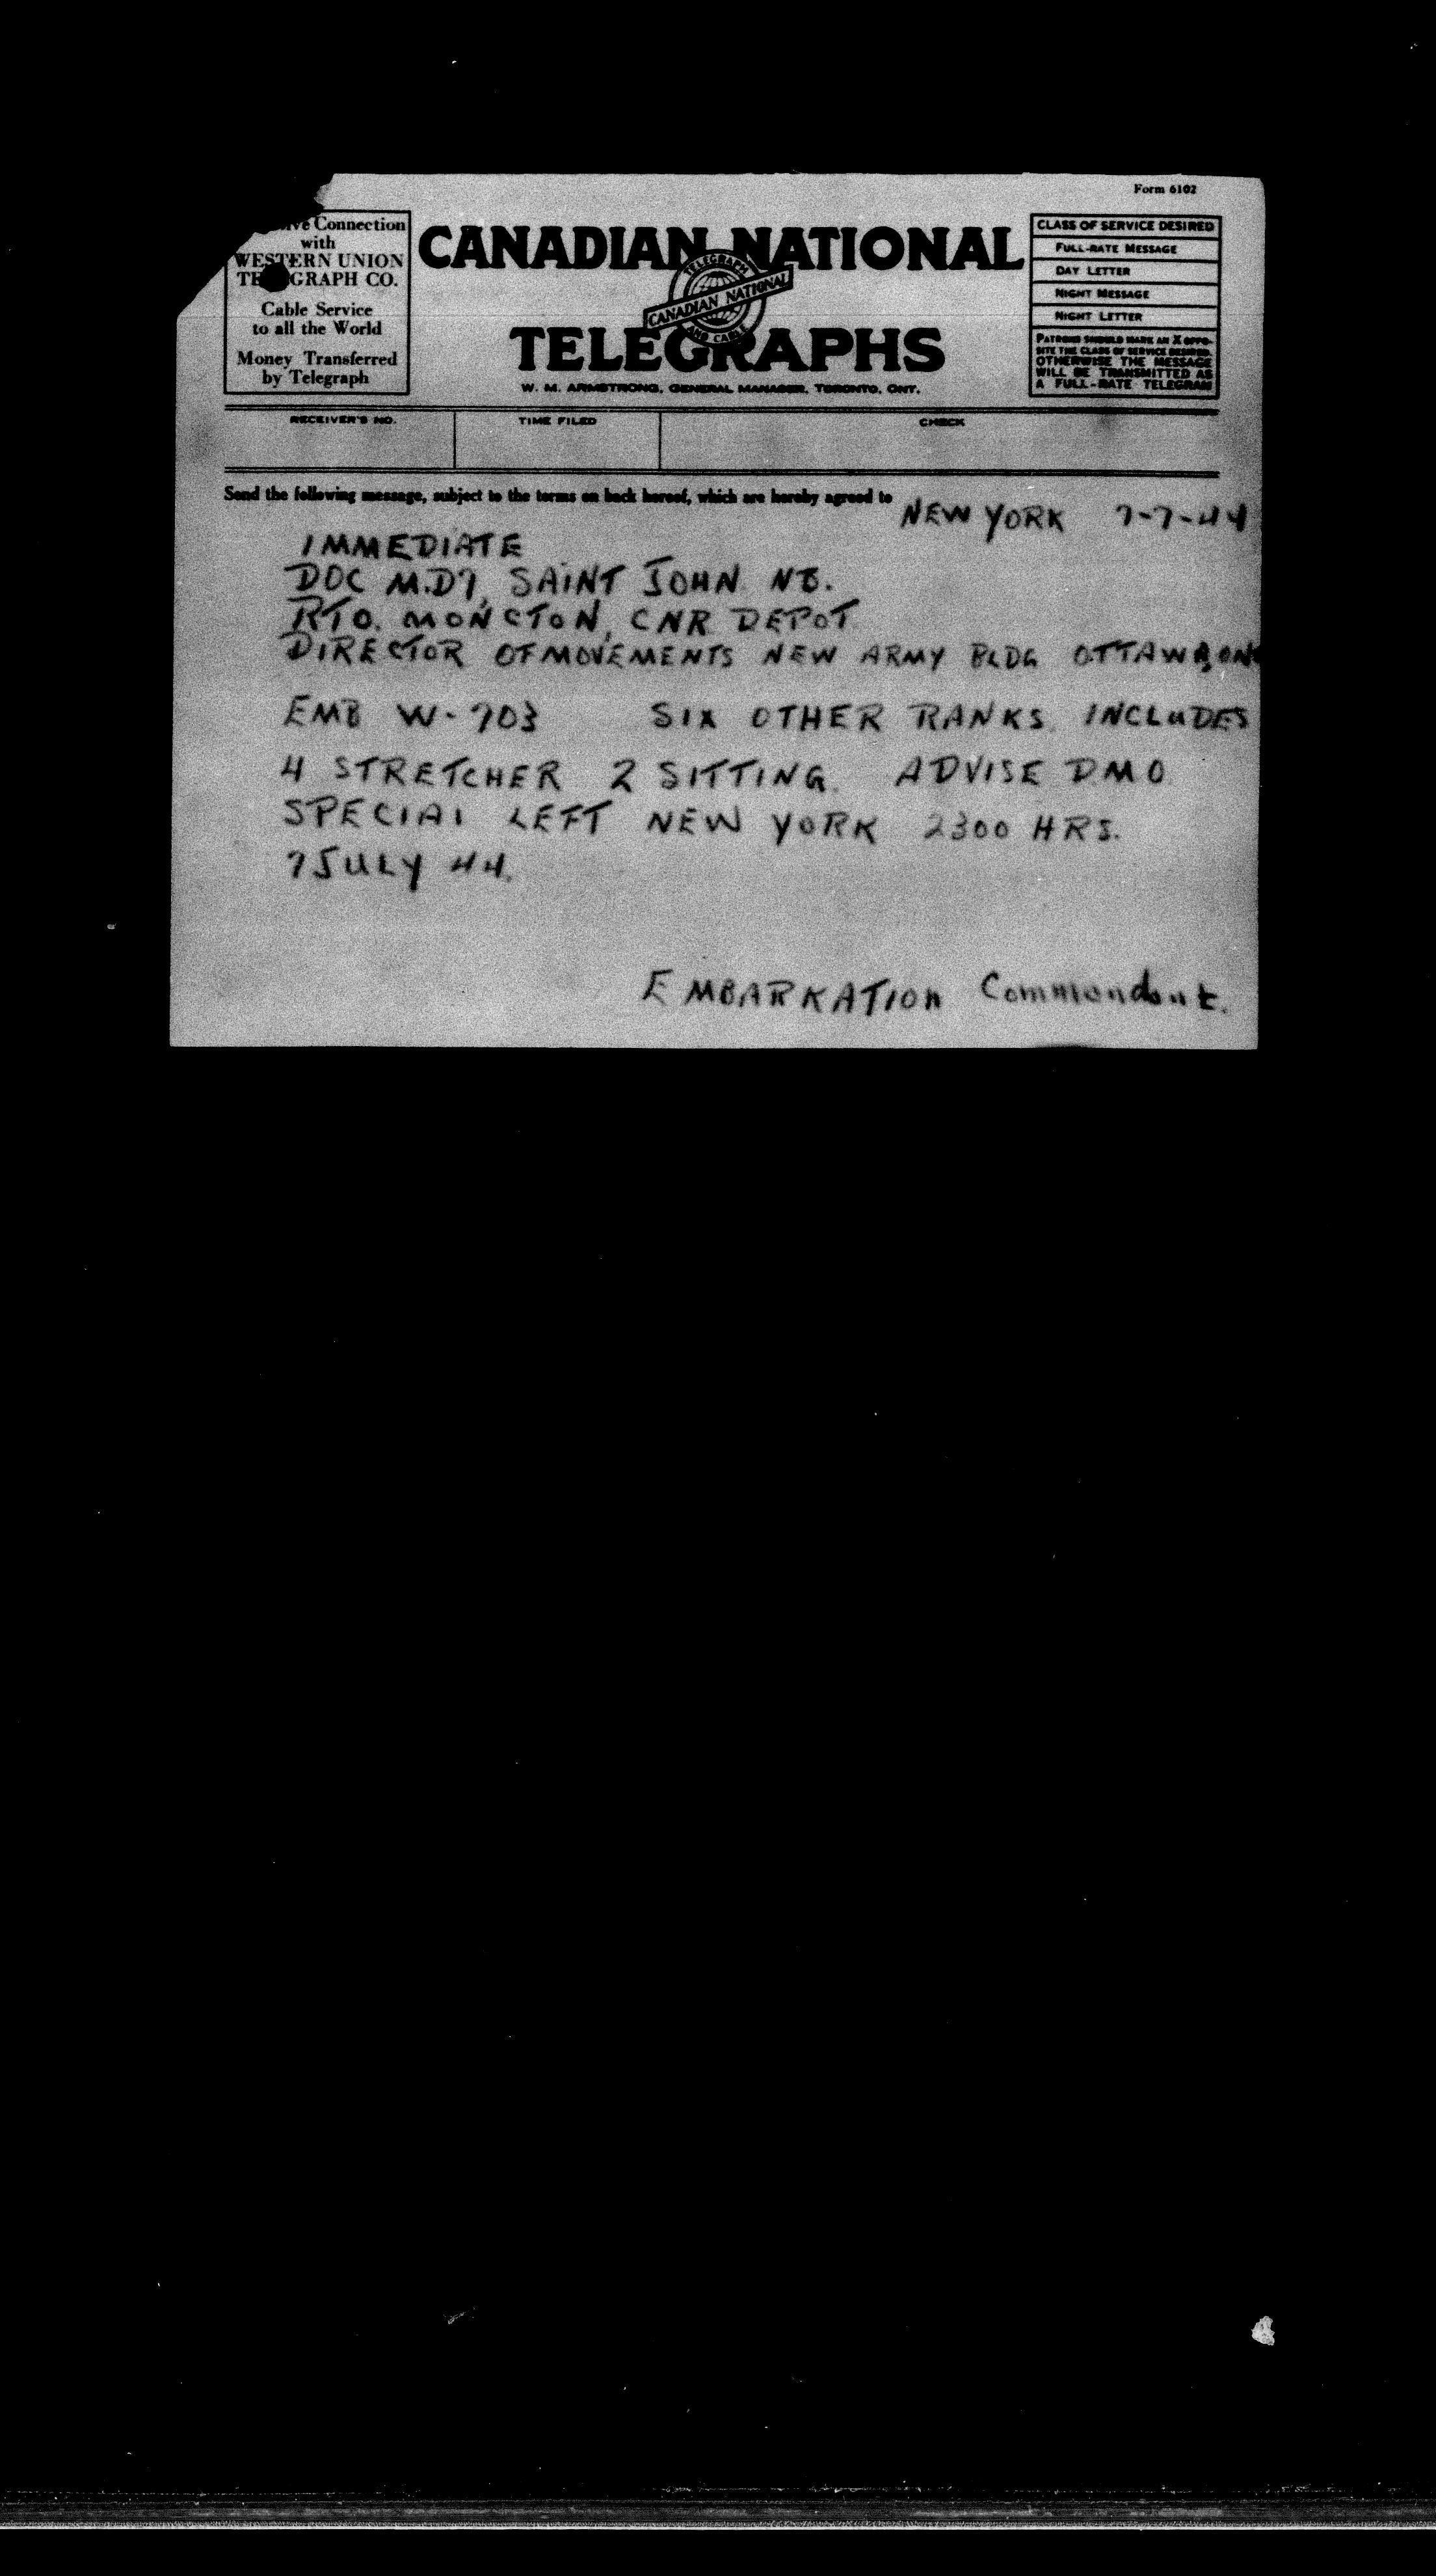 Form 6102
Connection
with
WESTERN UNION
TELEGRAPH CO.
Cable Service
to all the World
Money Transferred
by Telegraph
CANADIAN NATIONAL
TELEGRAPH
CANADIAN NATIONAL
AND CABLE
TELEGRAPHS
W. M. ARMSTRONG, GENERAL MANAGER, TORONTO, ONT.
CLASS OF SERVICE DESIRED
FULL-RATE MESSAGE
DAY LETTER
NIGHT MESSAGE
NIGHT LETTER
PATRONS SHOULD MARK AN X OPPO-
SITE THE CLASS OF SERVICE DESIRED.
OTHERWISE THE MESSAGE
WILL BE TRANSMITTED AS
A FULL-RATE TELEGRAM
RECEIVER'S NO. TIME FILED CHECK
Send the following message, subject to the terms on back hereof, which are hereby agreed to
NEW YORK 7-7-44
IMMEDIATE
DOC M.D7, SAINT JOHN NB.
RTO. MONCTON, CNR DEPOT
DIRECTOR OF MOVEMENTS NEW ARMY BLDG OTTAWA, ON
EMB W-703 SIX OTHER RANKS. INCLUDES
4 STRETCHER 2 SITTING. ADVISE DMO
SPECIAL LEFT NEW YORK 2300 HRS.
7 JULY 44.
EMBARKATION Commandant.